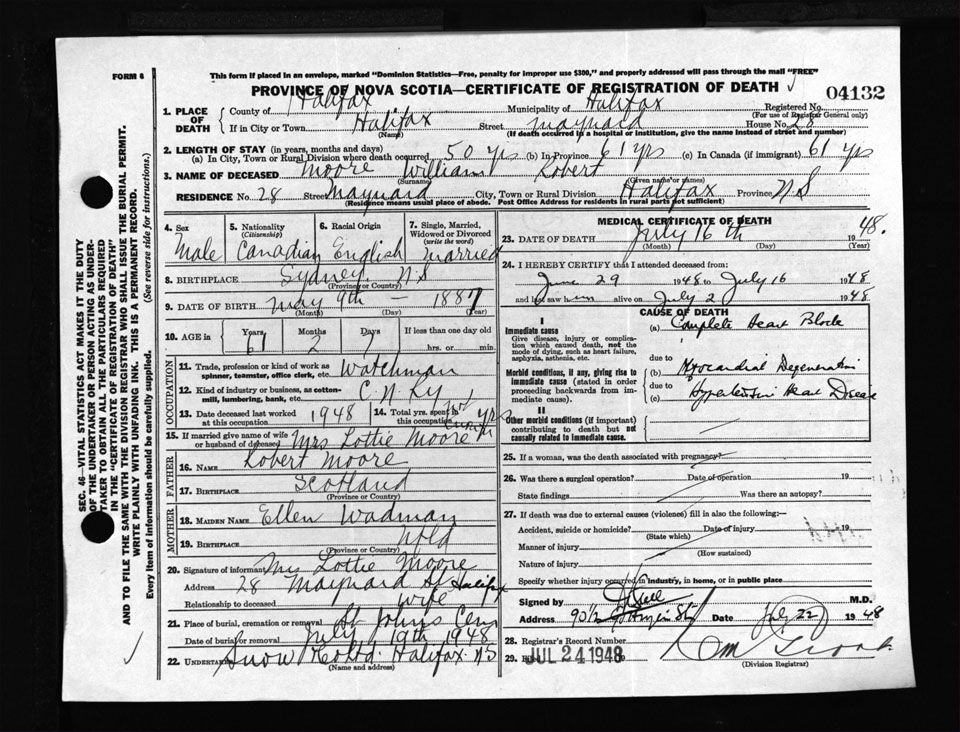 FORM 6
This form if placed in an envelope, marked "Dominion Statistics—Free, penalty for improper use $300," and properly addressed will pass through the mail "FREE"
PROVINCE OF NOVA SCOTIA—CERTIFICATE OF REGISTRATION OF DEATH
04132
1. PLACE OF DEATH
County of Halifax Municipality of Halifax Registered No.
(For use of Registrar General only)
If in City or Town Halifax Street Maynard House No. 28
(Name) (If death occurred in a hospital or institution, give the name instead of street and number)
2. LENGTH OF STAY (in years, months and days)
(a) In City, Town or Rural Division where death occurred 50 yrs (b) In Province 61 yrs (c) In Canada (if immigrant) 61 yrs
3. NAME OF DECEASED Moore William Robert
(Surname) (Given name or names)
RESIDENCE No. 28 Street Maynard City, Town or Rural Division Halifax Province N S
(Residence means usual place of abode. Post Office Address for Residents in rural parts not sufficient)
4. Sex
Male
5. Nationality (Citizenship)
Canadian
6. Racial Origin
English
7. Single, Married, Widowed or Divorced (write the word)
Married
8. BIRTHPLACE Sydney N S
(Province or Country)
9. DATE OF BIRTH May 9th — 1887
(Month) (Day) (Year)
10. AGE in Years Months Days If less than one day old
61 2 7 hrs. or min.
OCCUPATION
11. Trade, profession or kind of work as spinner, teamster, office clerk, etc. Watchman
12. Kind of industry or business, as cotton-mill, lumbering, bank, etc. C. N Ry
13. Date deceased last worked at this occupation 1948
14. Total yrs. spent in this occupation yrs
15. If married give name of wife or husband of deceased Mrs Lottie Moore
FATHER
16. NAME Robert Moore
17. BIRTHPLACE Scotland
(Province or Country)
MOTHER
18. MAIDEN NAME Ellen Wadman
19. BIRTHPLACE Nfld
(Province or Country)
20. Signature of informant Mrs Lottie Moore
Address 28 Maynard St Halifax
Relationship to deceased wife
21. Place of burial, cremation or removal St Johns Cem
Date of burial or removal July 19th 1948
22. UNDERTAKER Snow Co Ltd. Halifax N S
(Name and address)
MEDICAL CERTIFICATE OF DEATH
23. DATE OF DEATH July 16th 1948.
(Month) (Day) (Year)
24. I HEREBY CERTIFY that I attended deceased from:
June 29 1948 to July 16 1948
and last saw him alive on July 2 1948
CAUSE OF DEATH
I
Immediate cause
Give disease, injury or complication which caused death, not the mode of dying, such as heart failure, asphyxia, asthenia, etc.
(a) Complete Heart Block
due to
Morbid conditions, if any, giving rise to immediate cause (stated in order proceeding backwards from immediate cause).
(b) Myocardial Degeneration
due to
(c) Hypertensive Heart Disease
II
Other morbid conditions (if important) contributing to death but not causally related to immediate cause.
25. If a woman, was the death associated with pregnancy?
26. Was there a surgical operation? Date of operation 19
State findings Was there an autopsy?
27. If death was due to external causes (violence) fill in also the following:—
Accident, suicide or homicide? Date of injury 19
(State which)
Manner of injury
(How sustained)
Nature of injury
Specify whether injury occurred in industry, in home, or in public place
Signed by M.D.
Address 90½ Date July 22 1948
28. Registrar's Record Number
29. JUL 24 1948
(Division Registrar)
SEC. 46—VITAL STATISTICS ACT MAKES IT THE DUTY
OF THE UNDERTAKER OR PERSON ACTING AS UNDERTAKER TO OBTAIN ALL THE PARTICULARS REQUIRED
IN THE "CERTIFICATE OF REGISTRATION OF DEATH"
AND TO FILE THE SAME WITH THE DIVISION REGISTRAR WHO SHALL ISSUE THE BURIAL PERMIT.
WRITE PLAINLY WITH UNFADING INK. THIS IS A PERMANENT RECORD.
Every item of information should be carefully supplied. (See reverse side for instructions.)